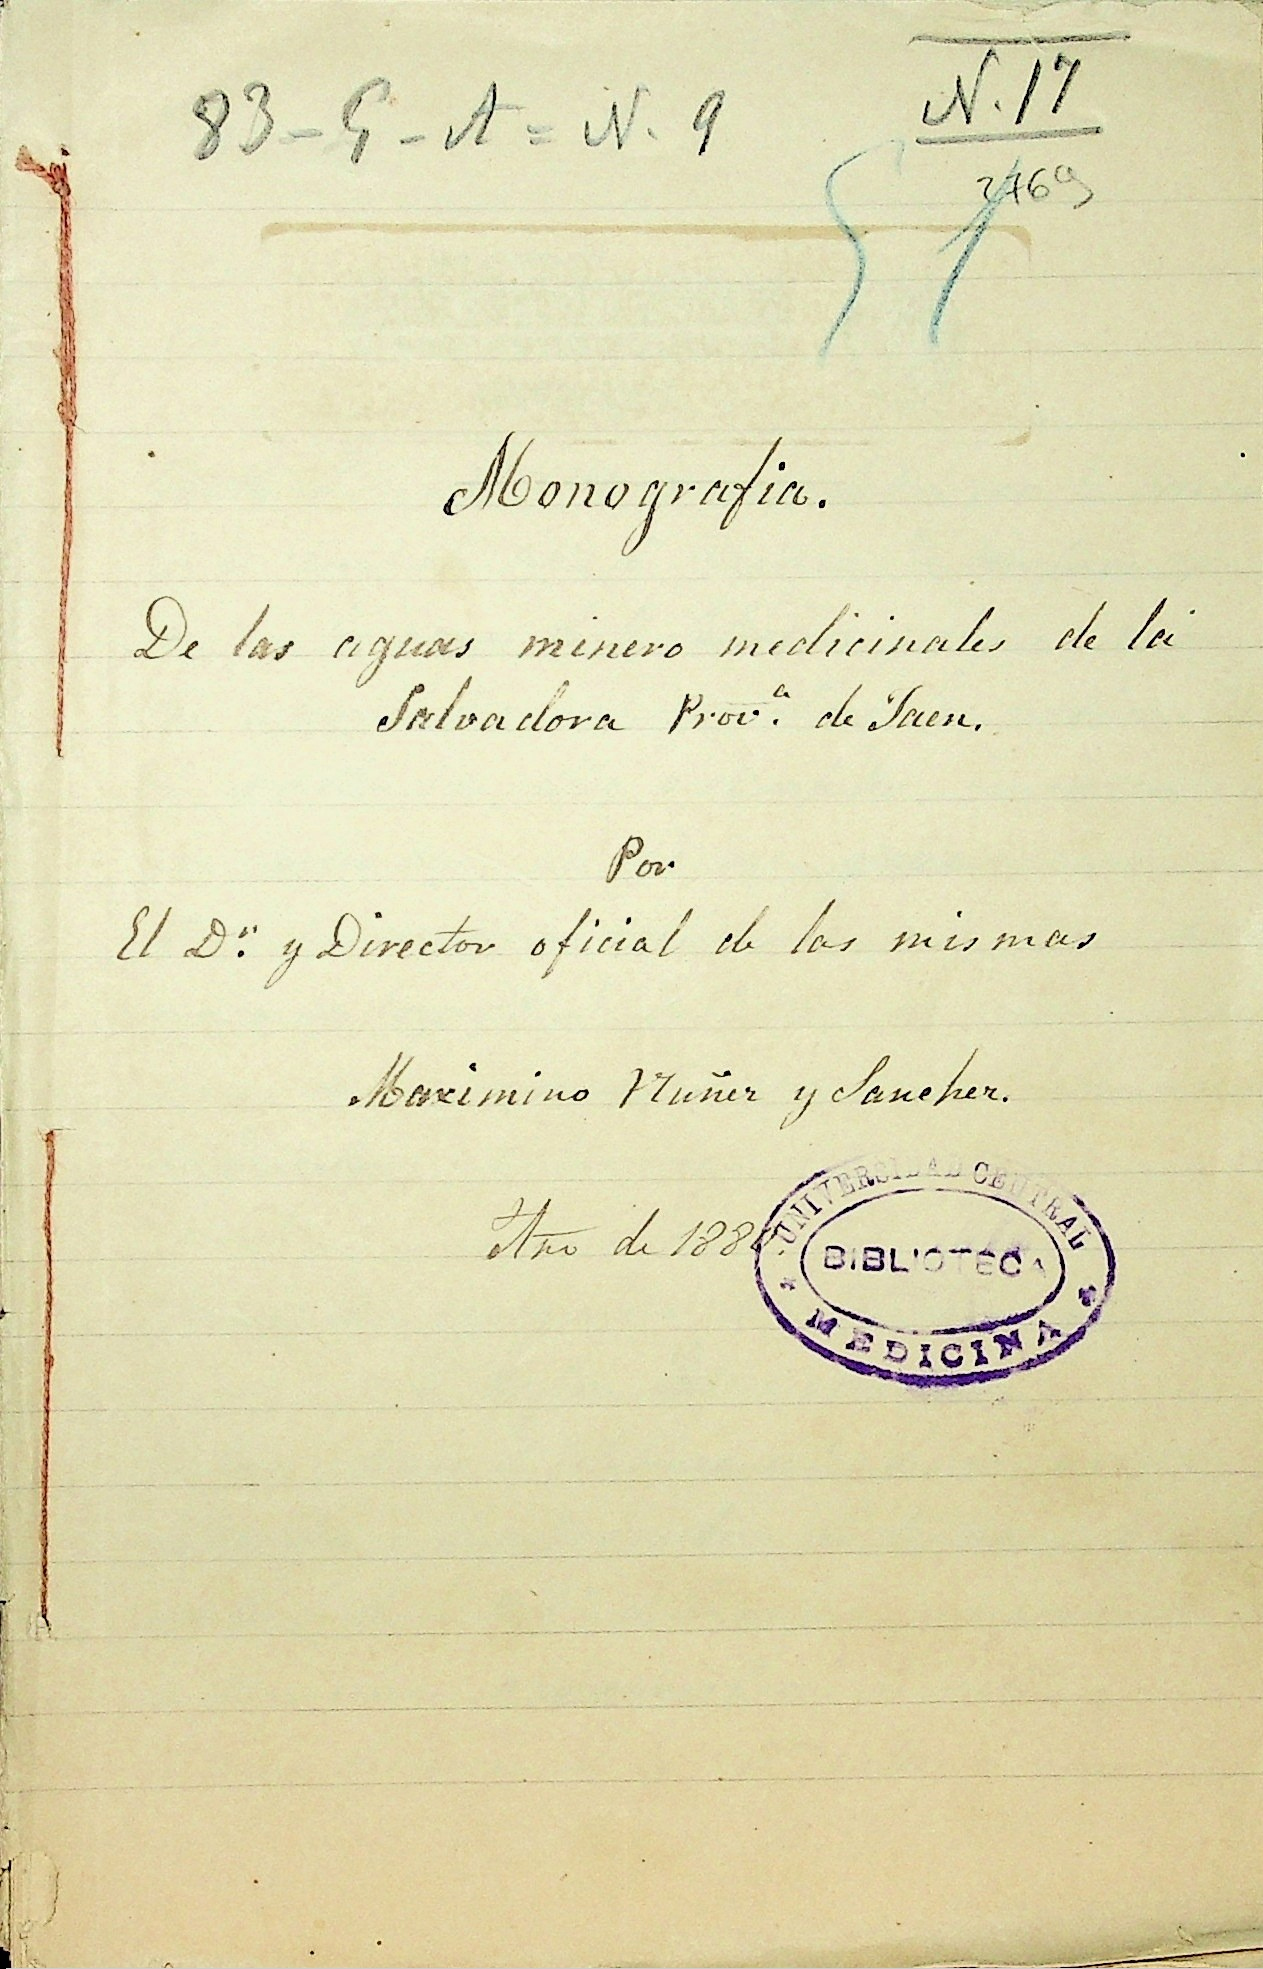 83 - G - A = N. 9
N. 17
2769
Monografia.
De las aguas minero medicinales de la
Salvadora Prov.ª de Jaen.
Por
El Dr. y Director oficial de las mismas
Maximino Nuñez y Sanchez.
Año de
UNIVERSIDAD CENTRAL
BIBLIOTECA
MEDICINA